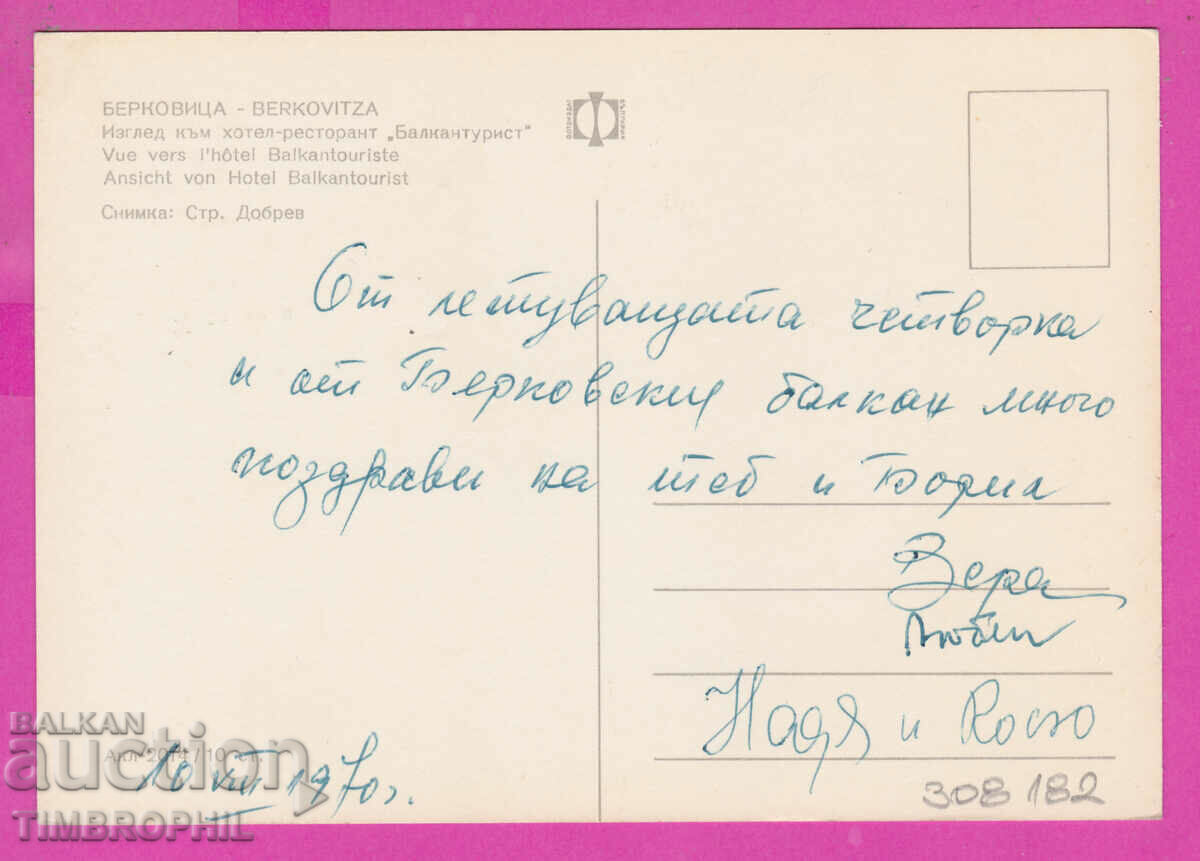 БЕРКОВИЦА - BERKOVITZA
Изглед към хотел-ресторант „Балкантурист"
Vue vers l'hôtel Balkantouriste
Ansicht von Hotel Balkantourist
Снимка: Стр. Добрев
От летуващата четворка
и от Берковския балкан много
поздрави на теб и Борил
Вера
Любен
Надя и Косьо
Акл-2014 / 10 ст.
10 VIII 1970 г.
308182
BALKAN
auction
TIMBROPHIL